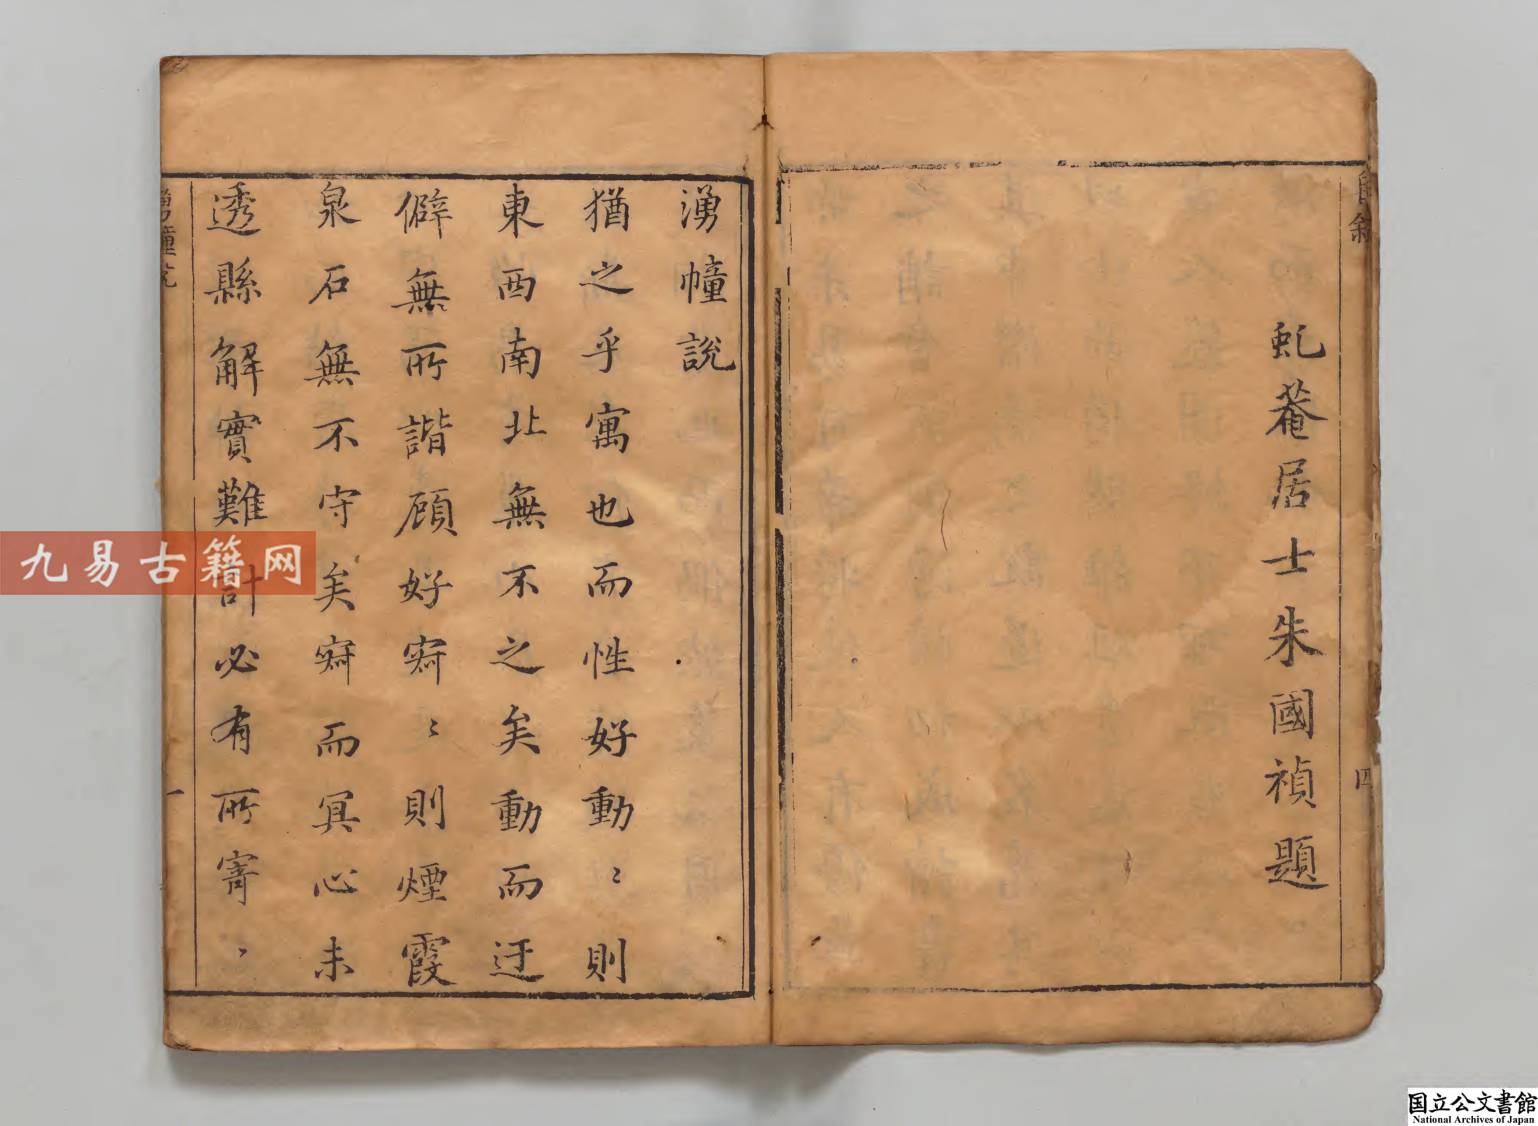 自叙
四
虬菴居士朱國禎題
湧幢說
猶之乎寓也而性好動〻則
東西南北無不之矣動而迂
僻無所諧顧好㝛〻則煙霞
泉石無不守矣㝛而冥心未
透縣解實難計必有所寄〻
湧幢說
一
九易古籍网
国立公文書館
National Archives of Japan